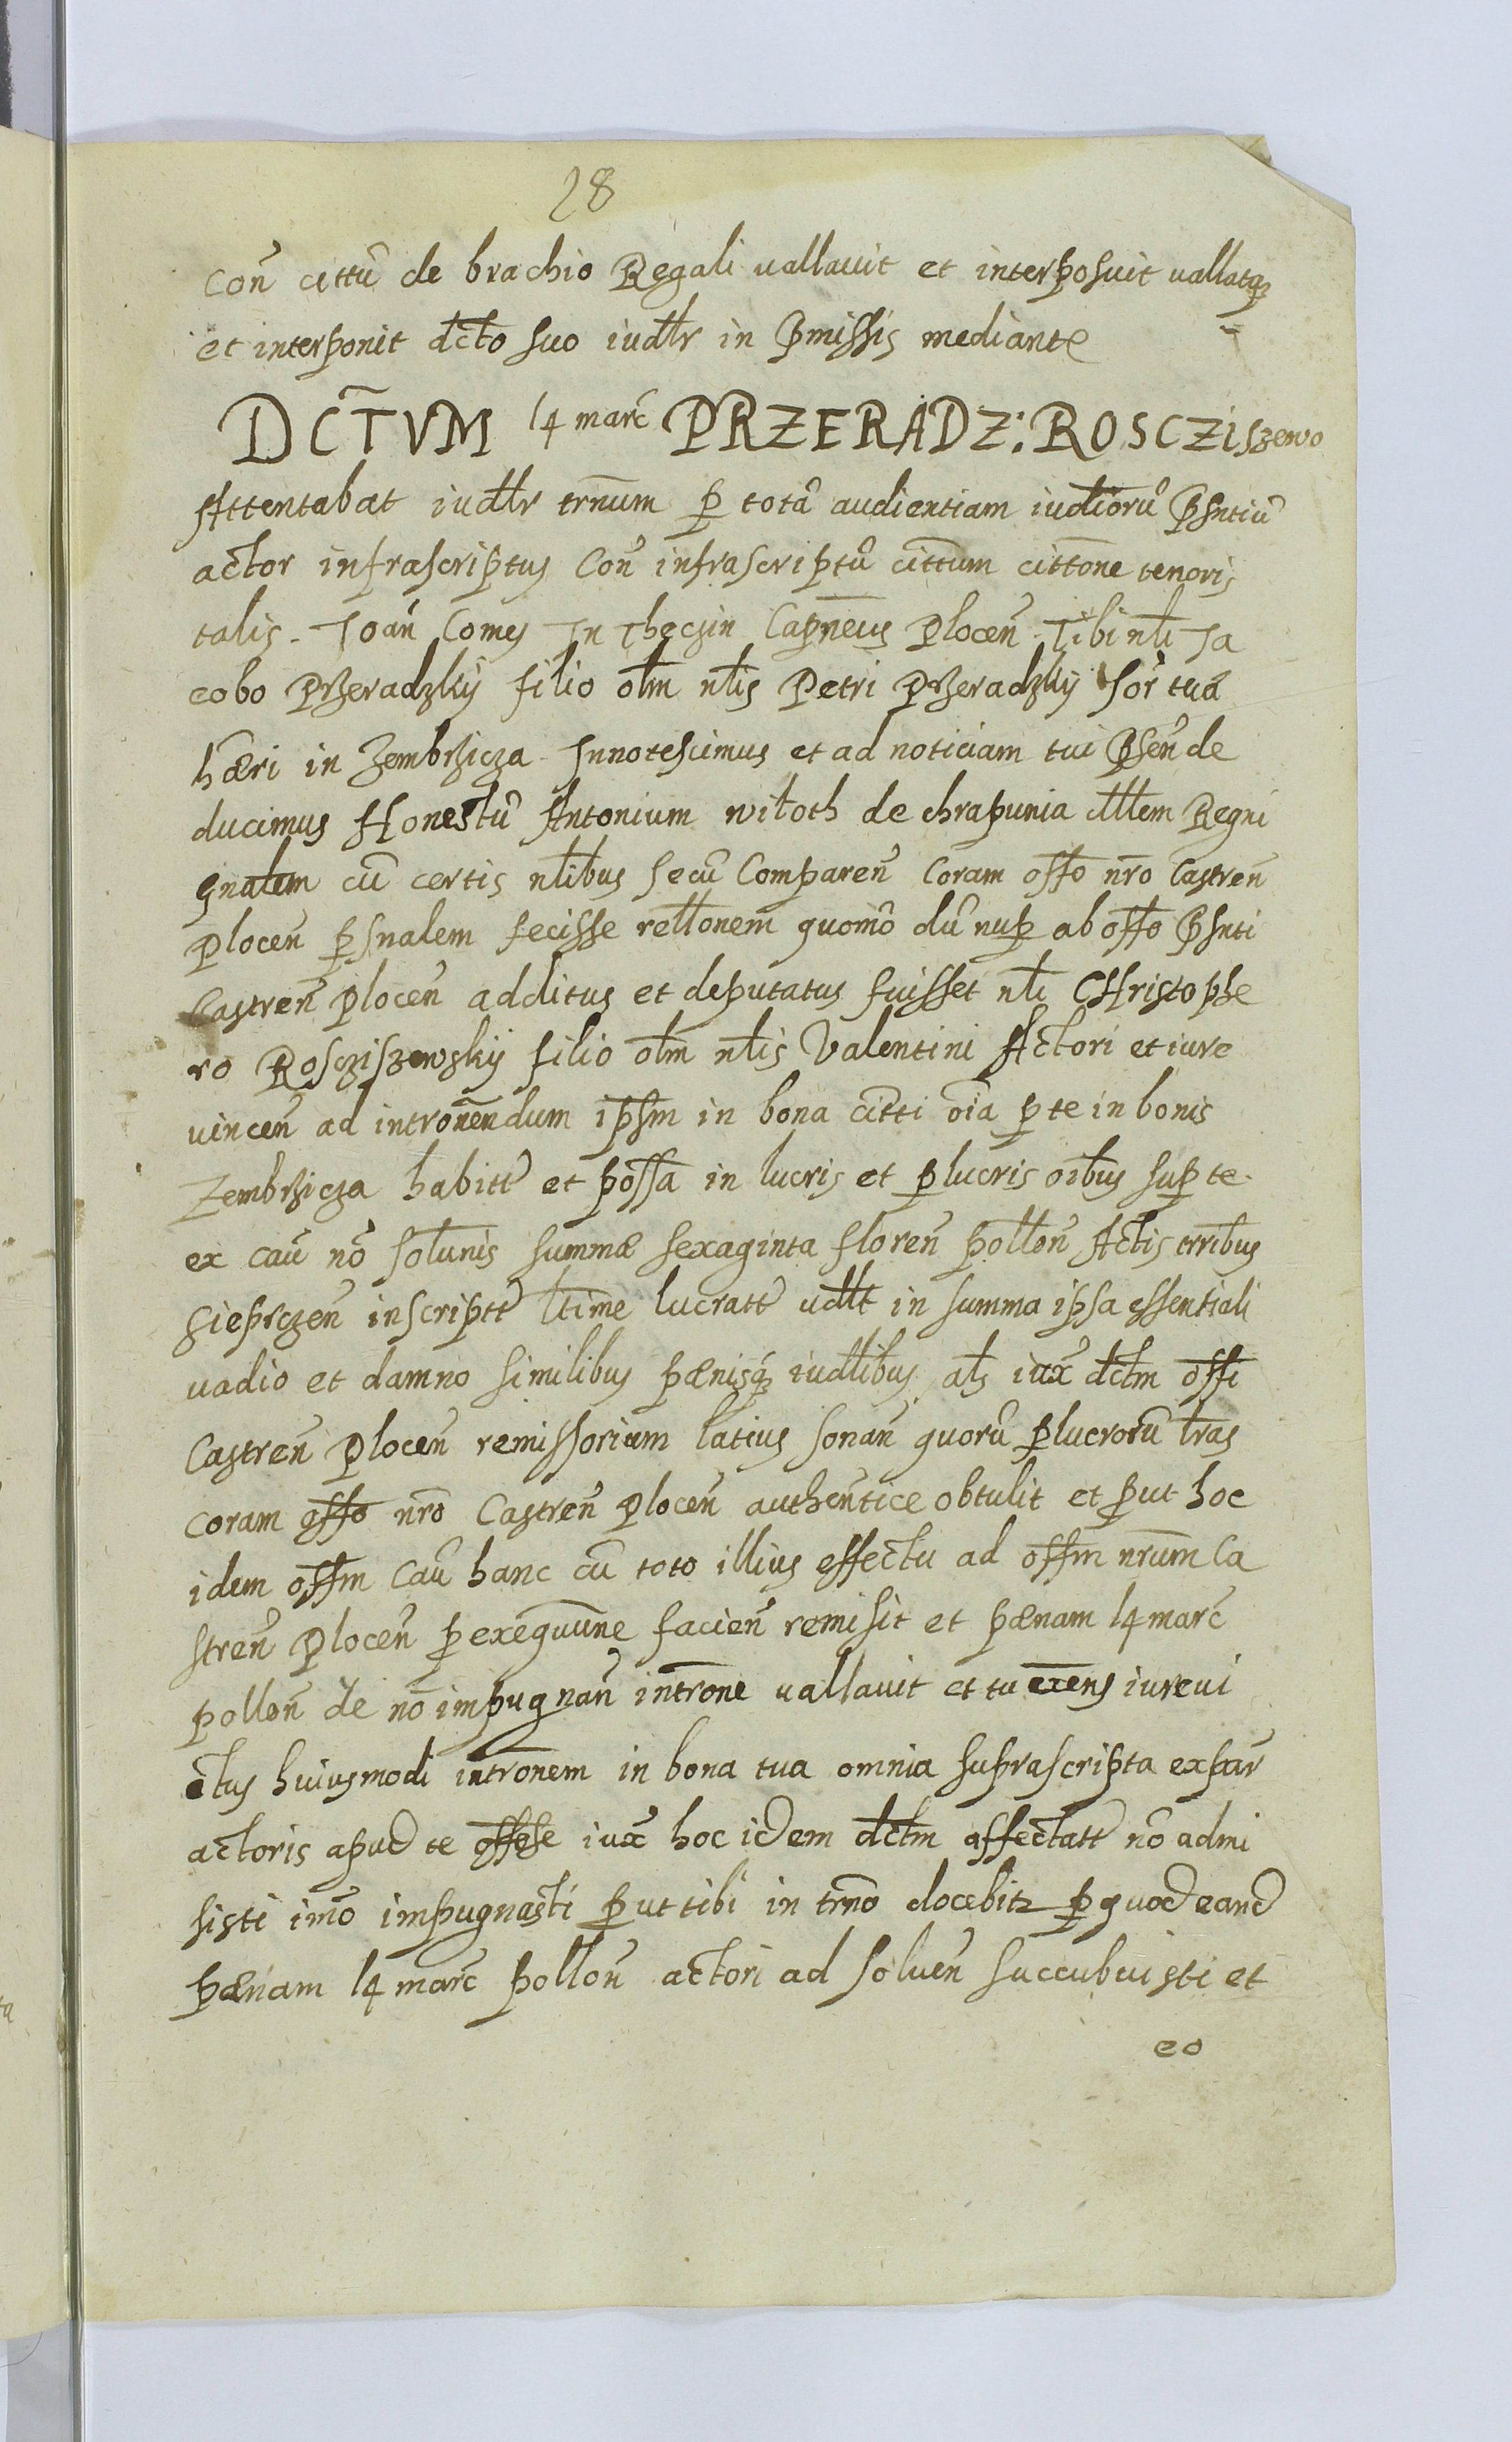 28
Con̄ cittū de brachio Regali vallavit et interposuit vallatq̄
et interponit dcto suo iudtr in p̄missis mediante
DCTVM 14 marc PRZERADZ: ROSCZiszewo
Attentabat iudtr trnum p totā audientiam iudtiorū p̄sntiū
actor infrascriptus Con̄ infrascriptū cittum cittone tenoris
talis. Joān Comes In Theczin Capneus Plocen̄. Tibi nłi Ja
cobo Przeradzkÿ filio ołm nłis Petri Przeradzkÿ sor tuā
hæri in Zembrzicza Innotescimus et ad noticiam tui p̄sen̄ de
ducimus Honestū Antonium wiłoth de chrapunia Mtłem Regni
gnalem cū certis nłibus secū Comparen̄ Coram offo nr̄o Castren̄
Plocen̄ psnalem fecisse reltonem quomō dū nup ab offo p̄snti
Castren̄ Plocen̄ additus et deputatus fuisset nłi CHristophe
ro Roscziszewskÿ filio ołm nłis Valentini Actori et iure
vincen̄ ad intronendum ipsm in bona citti oīa p te in bonis
Zembrzicza habitt et possa in lucris et plucris oībus sup te
ex cau nō solunis summæ sexaginta floren̄ pollon̄ Actis trribus
Sieprczen̄ inscriptt ltime lucratt vdłt in summa ipsa essentiali
vadio et damno similibus pænisq̄ iudłibus ałs iux dctm offi
Castren̄ Plocen̄ remissorium latius sonan̄ quorū plucrorū lr̄as
coram offo nr̄o Castren̄ Plocen̄ authentice obtulit et put hoc
idem offm cau hanc cū toto illius effectu ad offm nr̄um Ca
stren̄ Plocen̄ p exequune facien̄ remisit et pænam 14 marc
pollon̄ de nō impugnan̄ introne vallavit et tu exens iure vi
ctus huiusmodi intronem in bona tua omnia suprascripta ex par
actoris apud te offese iux hoc idem dctm affectatt nō admi
sisti imo impugnasti put tibi in trno docebitr p quod eand
pænam 14 marc pollon̄ actori ad soluen̄ succubuisti et
eo